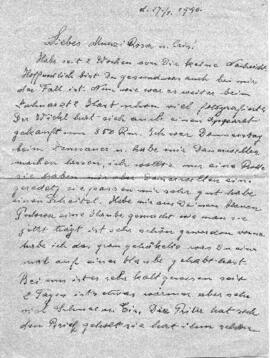 d. 17/1. 1940.
Liebes Munzi Rosa u. Eris.
Habe seit 2 Wochen von Dir keine Nachricht
Hoffentlich bist Du gesund was auch bei mir
der Fall ist. Nun wie war es weiter beim
Zahnarzt? hast schon viel fotografiert
Der hat sich auch einen Apparat
gekauft um 350 Rm. Ich war Donnerstag
beim u. habe mir Dauerwellen
machen lassen, ich wollte nur eine
sie haben mir aber Dauerwellen ein
geredet, sie passen mir sehr gut habe
einen Scheitel. Habe mir aus Deinem
eine Haube gemacht wie man sie
jetzt trägt ist sehr schön geworden
habe ich das grau gehäkelte was Du eine
mal auf einer Haube gehabt hast.
Bei uns ist es sehr kalt gewesen seit
2 Tagen ist etwas wärmer aber sehr
viel Schnee Die hat sich
den Brief geholt sie hat ihm schon